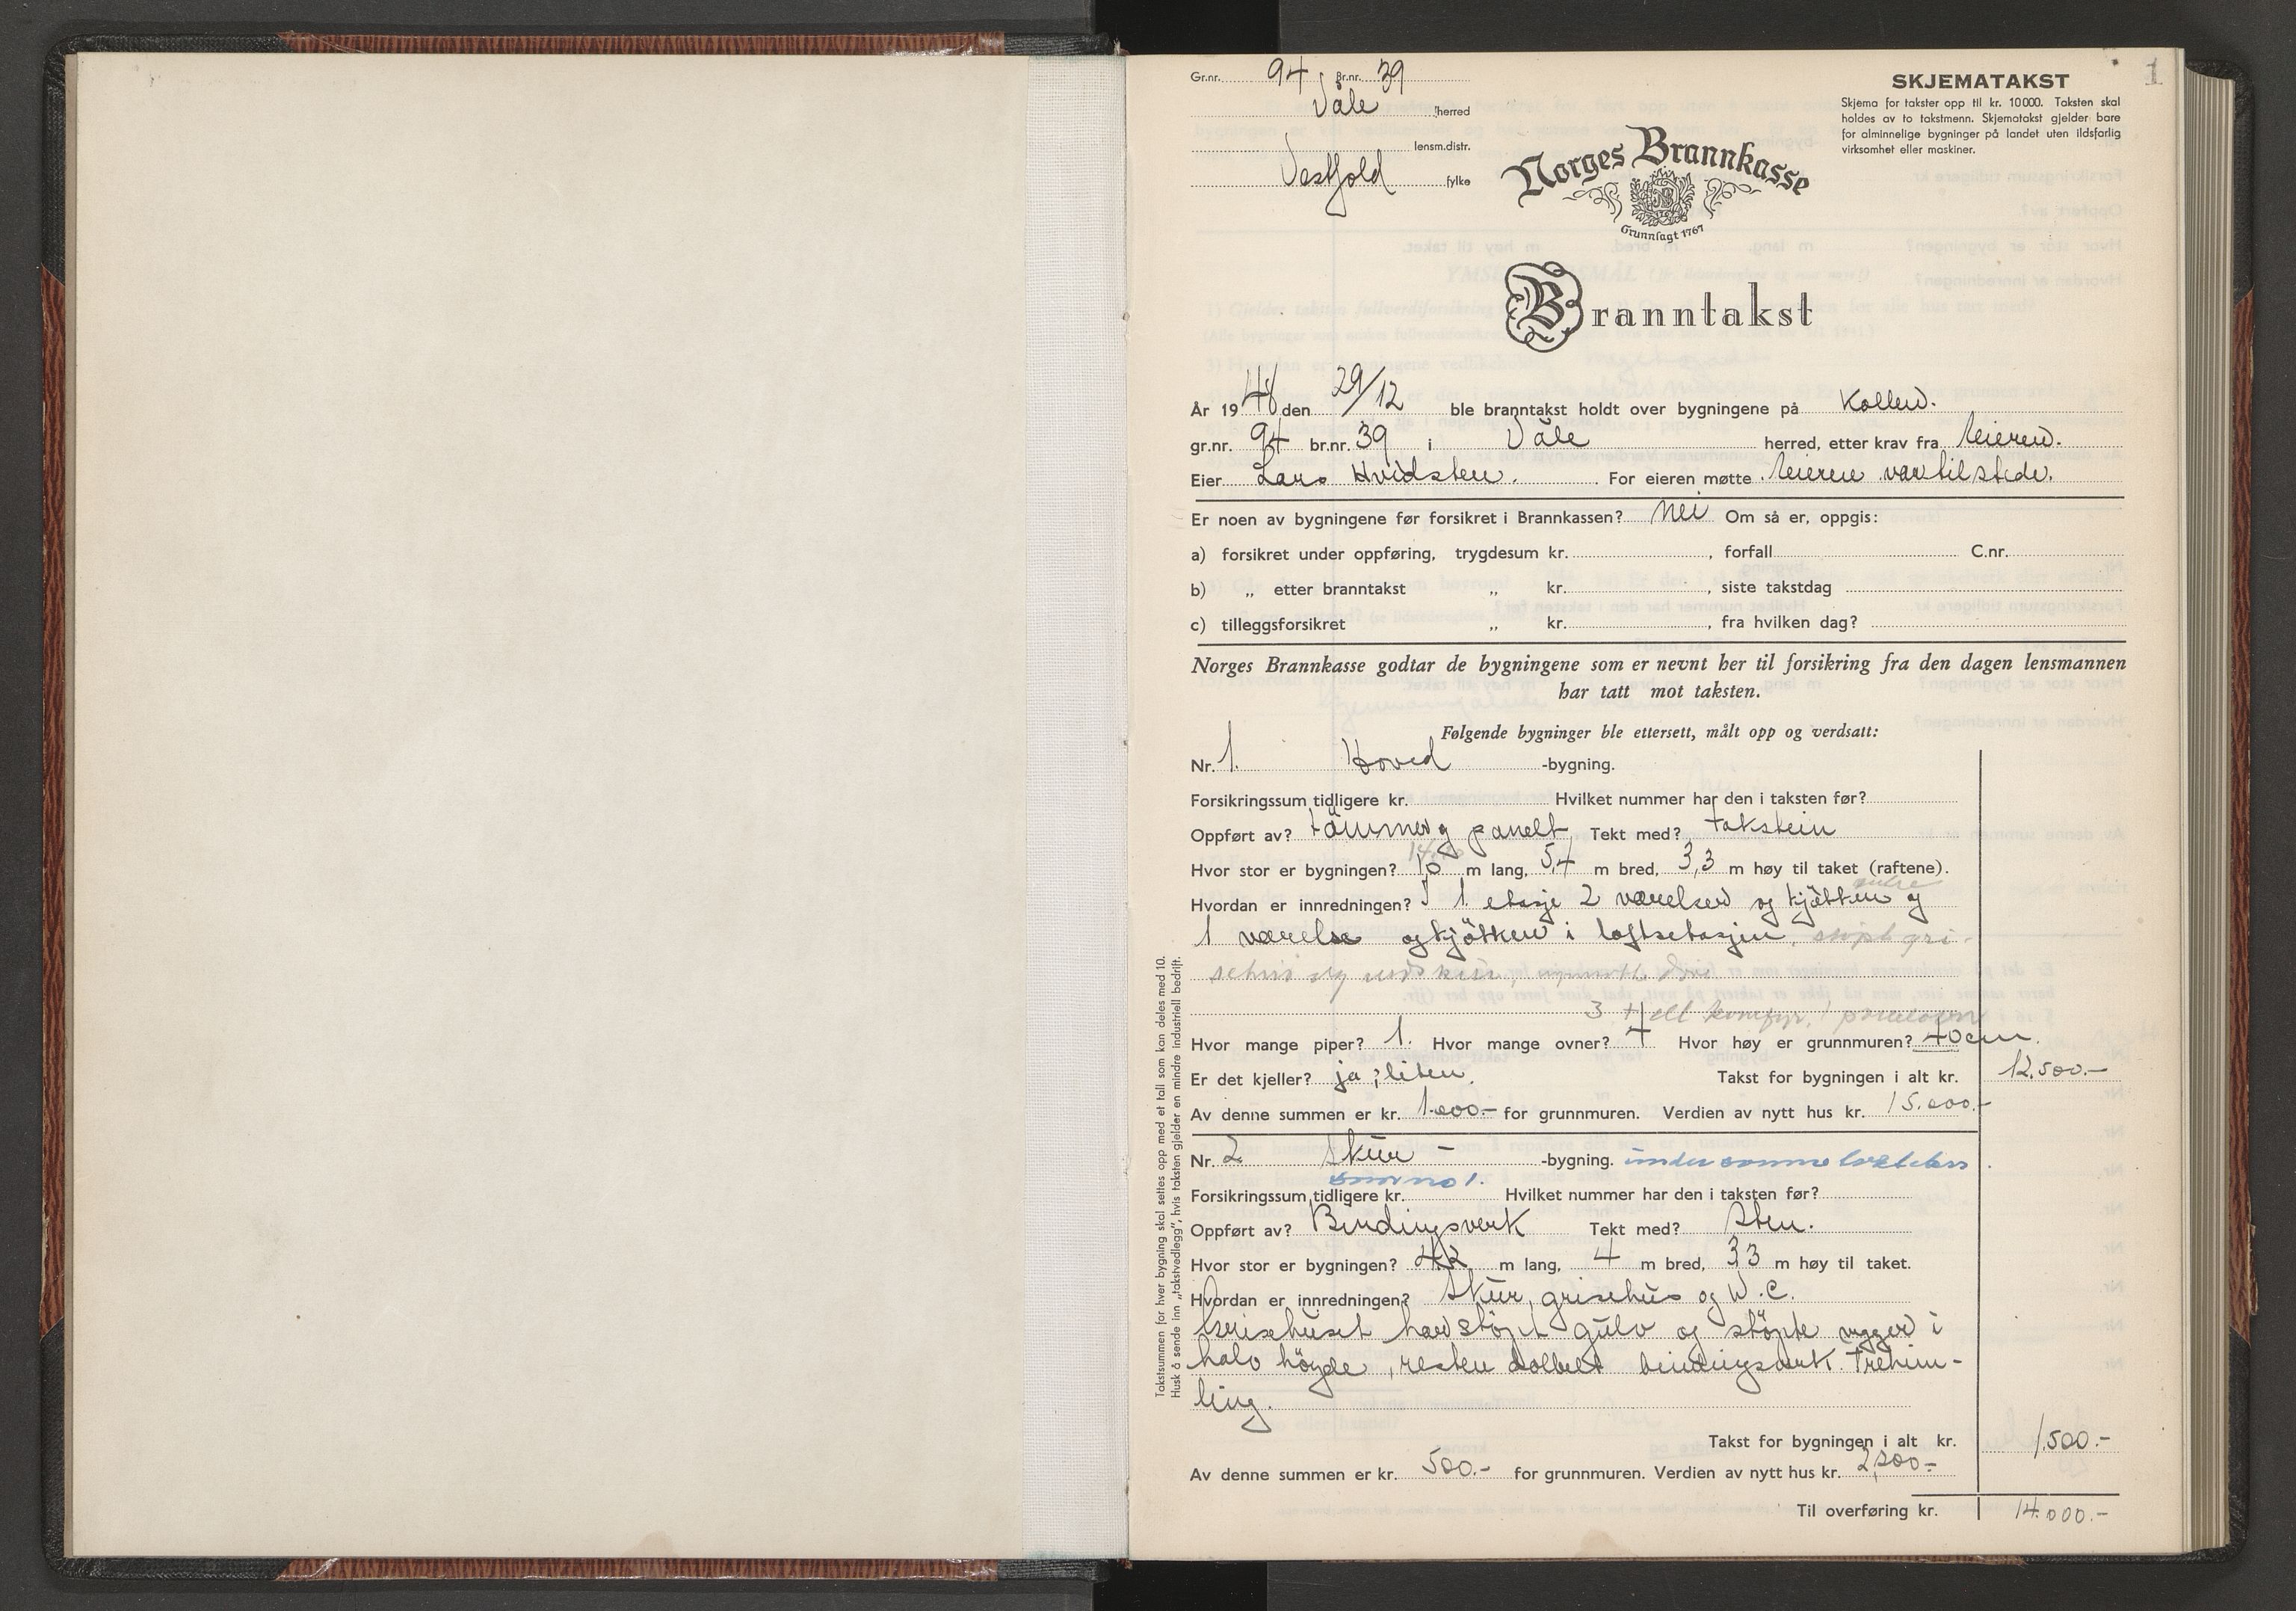 1
Gr.nr. 94 Br.nr. 39
Våle herred
lensm.distr.
Vestfold fylke
SKJEMATAKST
Skjema for takster opp til kr. 10000. Taksten skal
holdes av to takstmenn. Skjematakst gjelder bare
for alminnelige bygninger på landet uten ildsfarlig
virksomhet eller maskiner.
Norges Brannkasse
Grunnlagt 1767
Branntakst
År 1948 den 29/12 ble branntakst holdt over bygningene på
gr.nr. 94 br.nr. 39 i Våle herred, etter krav fra eieren.
Eier Lars Hvidsten. For eieren møtte eieren var tilstede.
Er noen av bygningene før forsikret i Brannkassen? nei Om så er, oppgis:
a) forsikret under oppføring, trygdesum kr. , forfall C.nr.
b) „ etter branntakst „ kr. , siste takstdag
c) tilleggsforsikret „ kr. , fra hvilken dag?
Norges Brannkasse godtar de bygningene som er nevnt her til forsikring fra den dagen lensmannen
har tatt mot taksten.
Følgende bygninger ble ettersett, målt opp og verdsatt:
Nr. 1. Hoved -bygning.
Forsikringssum tidligere kr. Hvilket nummer har den i taksten før?
Oppført av? tømmer og panelt Tekt med? takstein
Hvor stor er bygningen? 10 m lang, 5,4 m bred, 3,3 m høy til taket (raftene).
Hvordan er innredningen? I 1 etasje 2 værelser og kjøkken og
1 værelse og kjøkken i loftsetasjen.
3 + ell komfyr, 1
Hvor mange piper? 1. Hvor mange ovner? 4 Hvor høy er grunnmuren? 40 cm.
Er det kjeller? ja, liten. Takst for bygningen i alt kr. 12.500.-
Av denne summen er kr. 1.000.- for grunnmuren. Verdien av nytt hus kr. 15.000.-
Nr. 2 Skur - -bygning. under samme
som no 1.
Forsikringssum tidligere kr. Hvilket nummer har den i taksten før?
Oppført av? Bindingsverk Tekt med? Sten.
Hvor stor er bygningen? m lang, 4 m bred, 3,3 m høy til taket.
Hvordan er innredningen? Skur, grisehus og W.C.
Grisehuset har støpt gulv og støpte vegger i
halv høyde, resten dobbelt bindingsverk. Trehim-
ling.
Takst for bygningen i alt kr. 1.500.-
Av denne summen er kr. 500.- for grunnmuren. Verdien av nytt hus kr.
Til overføring kr. 14.000.-
Takstsummen for hver bygning skal settes opp med et tall som kan deles med 10.
Husk å sende inn „takstvedlegg", hvis taksten gjelder en mindre industriell bedrift.